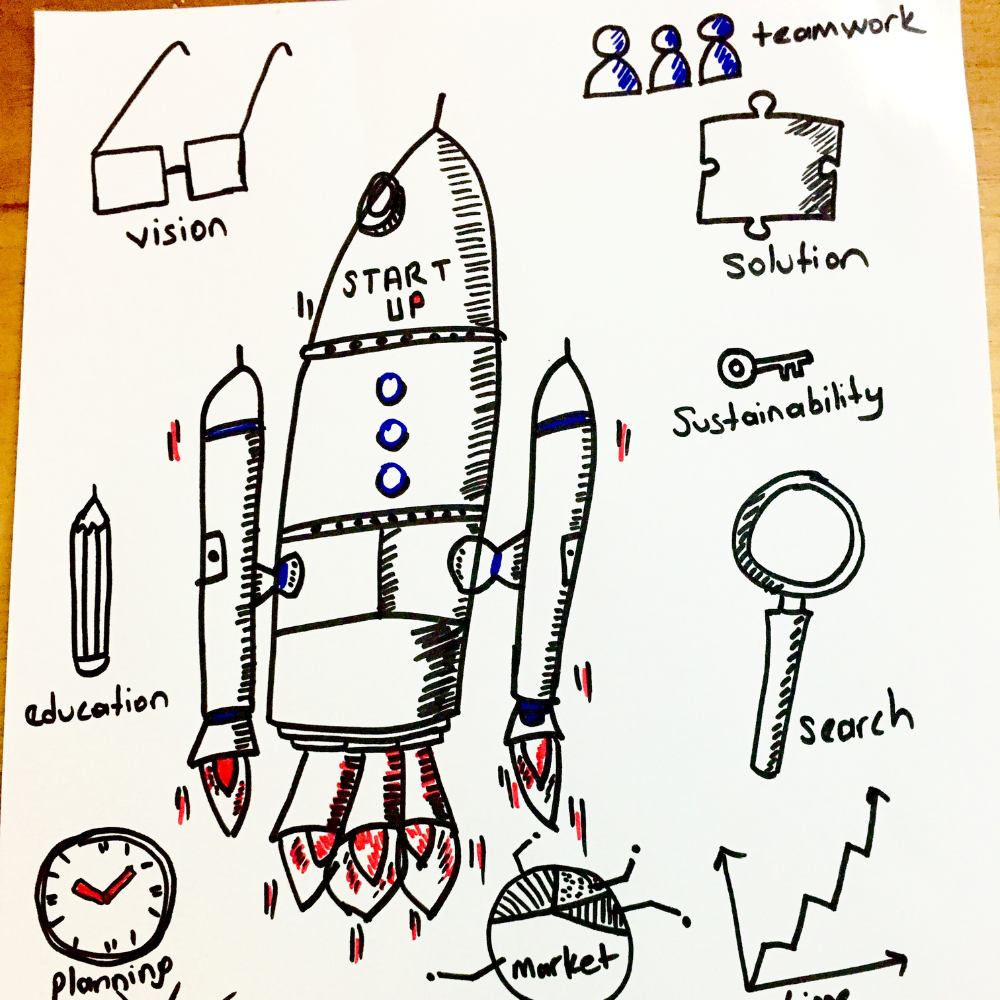 teamwork
vision
solution
START
UP
Sustainability
education
search
planning
market
time